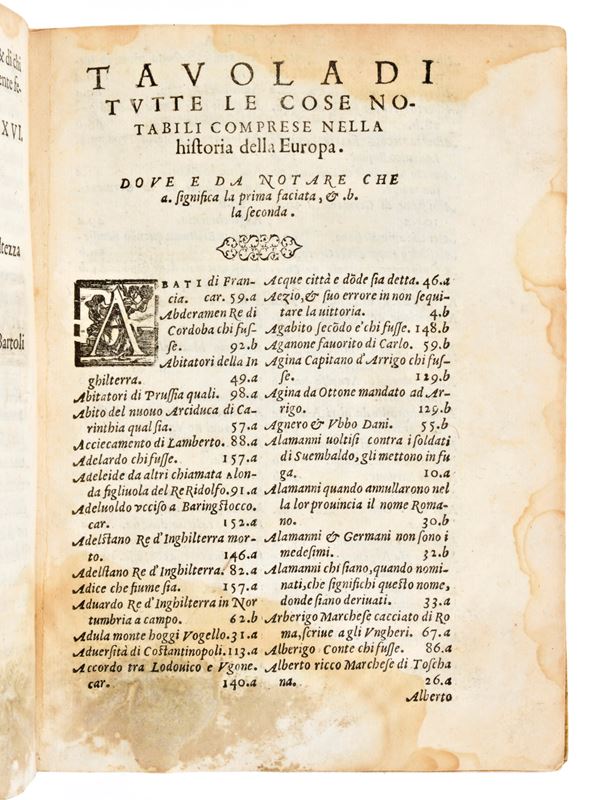 & di chi
ente fe-
XVI.
ltezza
Bartoli
TAVOLA DI
TVTTE LE COSE NO-
TABILI COMPRESE NELLA
hiſtoria della Europa.
DOVE E DA NOTARE CHE
a. ſignifica la prima faciata, & .b.
la ſeconda.
ABATI di Fran-
cia. car. 59.a
Abderamen Re di
Cordoba chi fuſ-
ſe. 92.b
Abitatori della In
ghilterra. 49.a
Abitatori di Pruſſia quali. 98.a
Abito del nuouo Arciduca di Ca-
rinthia qual ſia. 57.a
Acciecamento di Lamberto. 88.a
Adelardo chi fuſſe. 157.a
Adeleide da altri chiamata Alon-
da figliuola del Re Ridolfo. 91.a
Adeluoldo vcciſo a Baringſtocco.
car. 152.a
Adelſtano Re d'Inghilterra mor-
to. 146.a
Adelſtano Re d'Inghilterra. 82.a
Adice che fiume ſia. 157.a
Aduardo Re d'Inghilterra in Nor
tumbria a campo. 62.b
Adula monte hoggi Vogello. 31.a
Aduerſità di Coſtantinopoli. 113.a
Accordo tra Lodouico e Vgone.
car. 140.a
Acque città e dõde ſia detta. 46.a
Aezio, & ſuo errore in non ſequi-
tare la uittoria. 4.b
Agabito ſecõdo e' chi fuſſe. 148.b
Aganone fauorito di Carlo. 59.b
Agina Capitano d'Arrigo chi fuſ-
ſe. 129.b
Agina da Ottone mandato ad Ar-
rigo. 129.b
Agnero & Vbbo Dani. 55.b
Alamanni uoltiſi contra i ſoldati
di Suembaldo, gli mettono in fu
ga. 10.a
Alamanni quando annullarono nel
la lor prouincia il nome Roma-
no. 30.b
Alamanni & Germani non ſono i
medeſimi. 32.b
Alamanni chi ſiano, quando nomi-
nati, che ſignifichi queſto nome,
donde ſiano deriuati. 33.a
Arberigo Marcheſe cacciato di Ro
ma, ſcriue a gli Vngheri. 67.a
Alberigo Conte chi fuſſe. 86.a
Alberto ricco Marcheſe di Toſcha
na. 26.a
Alberto